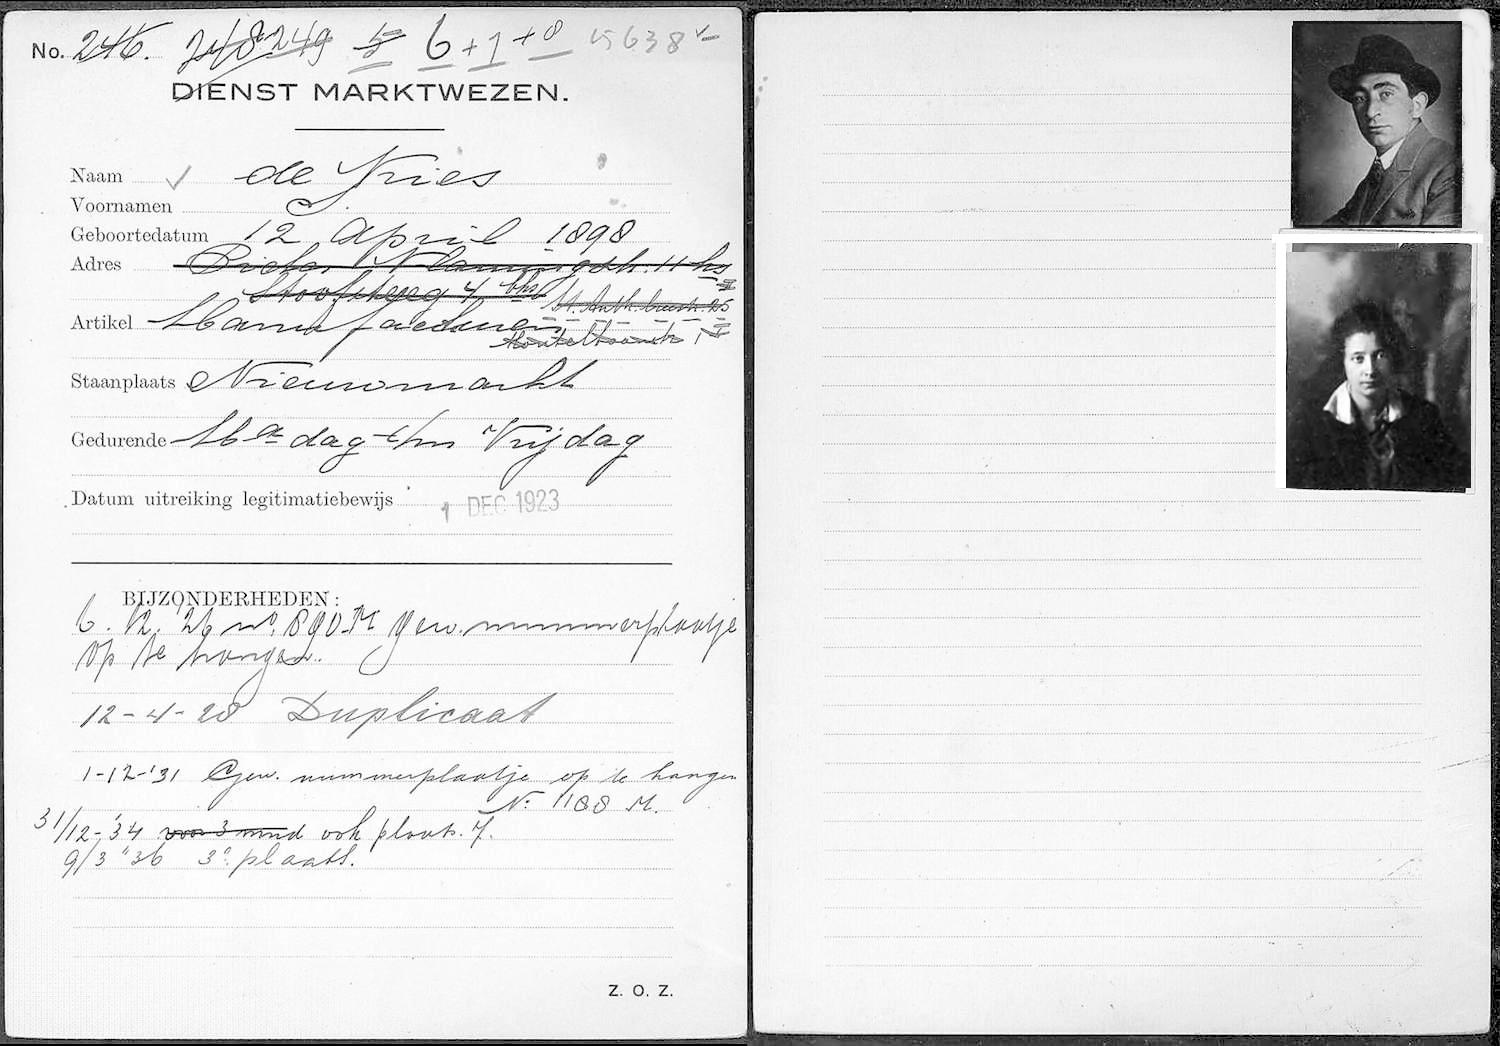 No. 246. 248 249 5 6 + 7 + 8 15638
DIENST MARKTWEZEN.
Naam de Vries
Voornamen J.
Geboortedatum 12 April 1898
Adres Pieter Vlamingstr. 11 hs
Stoofsteeg 4 bhs St. Anth. breestr. 25
Artikel Manufacturen
Montelbaanstr 1
Staanplaats Nieuwmarkt
Gedurende Maandag t/m Vrijdag
Datum uitreiking legitimatiebewijs 1 DEC 1923
BIJZONDERHEDEN:
6. 12. '26 no. 890 M gew. nummerplaatje
op te hangen.
12-4-28 Duplicaat
1-12-'31 Gew. nummerplaatje op te hangen
No 1188 M.
31/12-'34 voor 3 mnd ook plaats. 7.
9/3 "36 3e plaats.
Z. O. Z.